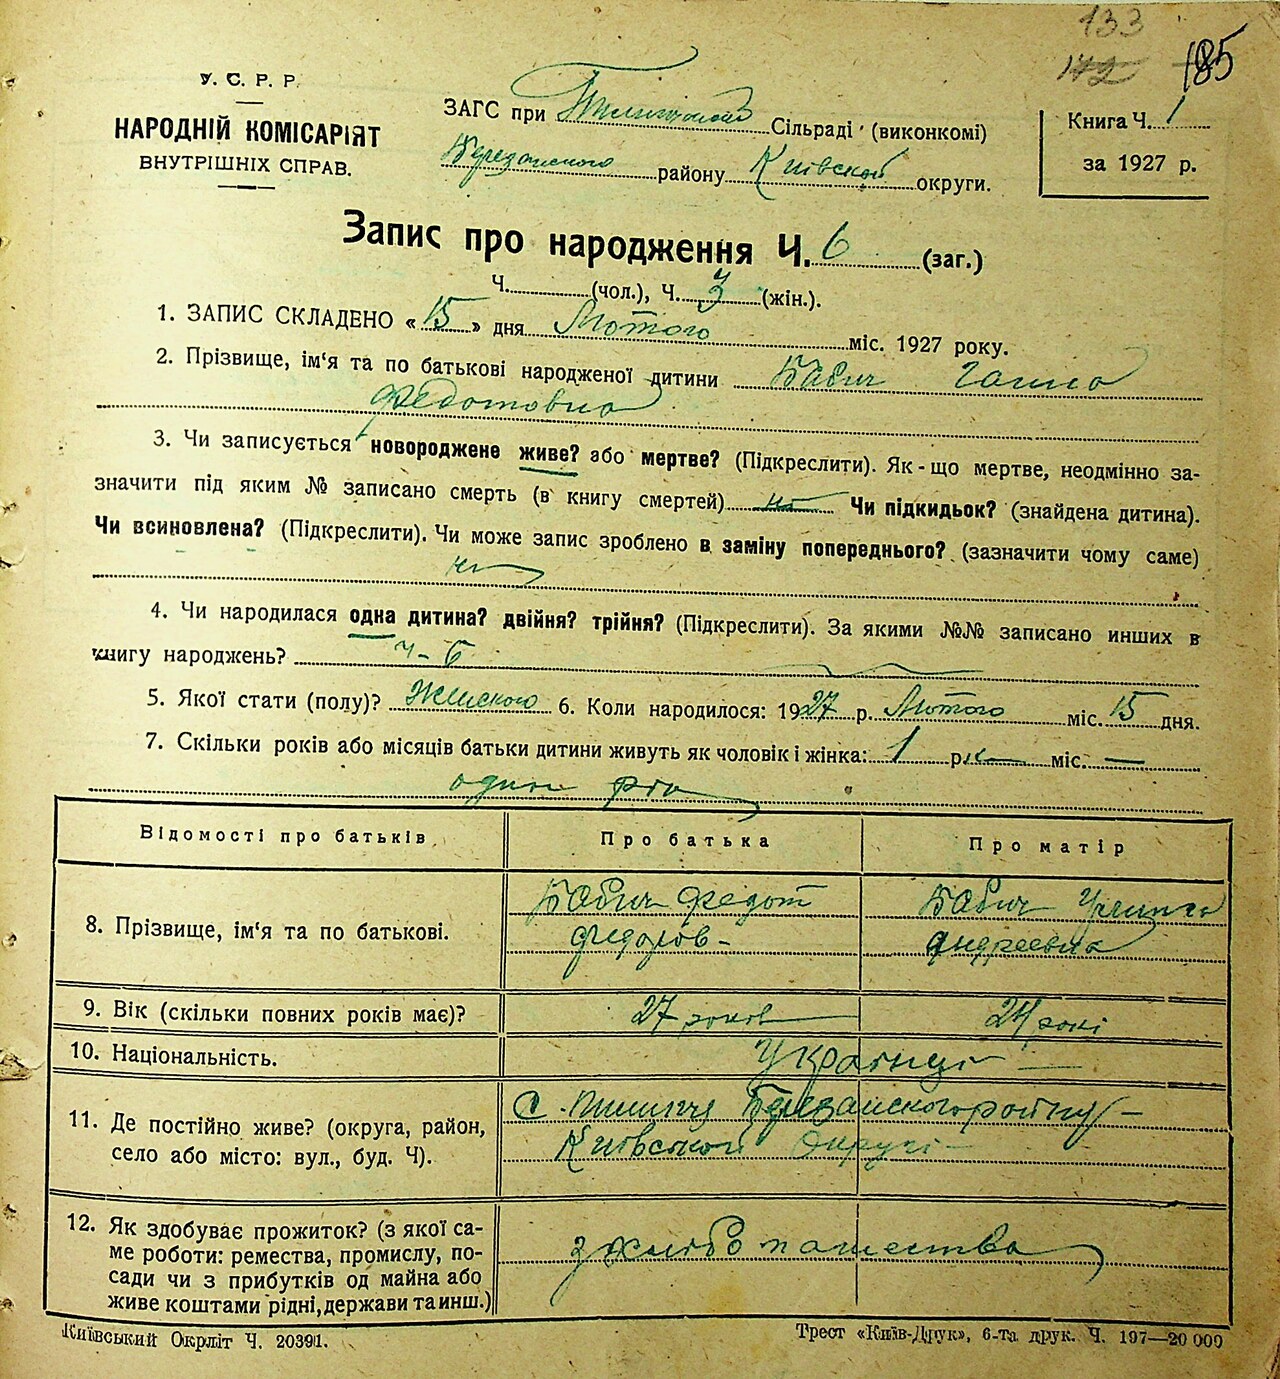 133
172 185
У. С. Р. Р.
НАРОДНІЙ КОМІСАРІЯТ
ВНУТРІШНІХ СПРАВ.
ЗАГС при Сільраді (виконкомі)
Березанского району Київской округи.
Книга Ч. 1
за 1927 р.
Запис про народження Ч. 6 (заг.)
Ч. (чол.), Ч. 3 (жін.).
1. ЗАПИС СКЛАДЕНО «15» дня Лютого міс. 1927 року.
2. Прізвище, ім'я та по батькові народженої дитини Бабич Ганна
Федотовна
3. Чи записується новороджене живе? або мертве? (Підкреслити). Як-що мертве, неодмінно за-
значити під яким № записано смерть (в книгу смертей) ні Чи підкидьок? (знайдена дитина).
Чи всиновлена? (Підкреслити). Чи може запис зроблено в заміну попереднього? (зазначити чому саме)
ні
4. Чи народилася одна дитина? двійня? трійня? (Підкреслити). За якими №№ записано инших в
книгу народжень? ч-6
5. Якої стати (полу)? Женского 6. Коли народилося: 1927 р. Лютого міс. 15 дня.
7. Скільки років або місяців батьки дитини живуть як чоловік і жінка: 1 рік міс. —
один рік
Відомості про батьків Про батька Про матір
8. Прізвище, ім'я та по батькові. Бабич Федот Бабич
Федоров- Андреевна
9. Вік (скільки повних років має)? 27 років 24 рокі
10. Національність. Українці
11. Де постійно живе? (округа, район, село або місто: вул., буд. Ч). С. Березанского району
Київської Округі
12. Як здобуває прожиток? (з якої са-
ме роботи: ремества, промислу, по-
сади чи з прибутків од майна або
живе коштами рідні, держави та инш.) з хлібопашества
Київський Окрліт Ч. 20391.
Трест «Київ-Друк», 6-та друк. Ч. 197—20 000